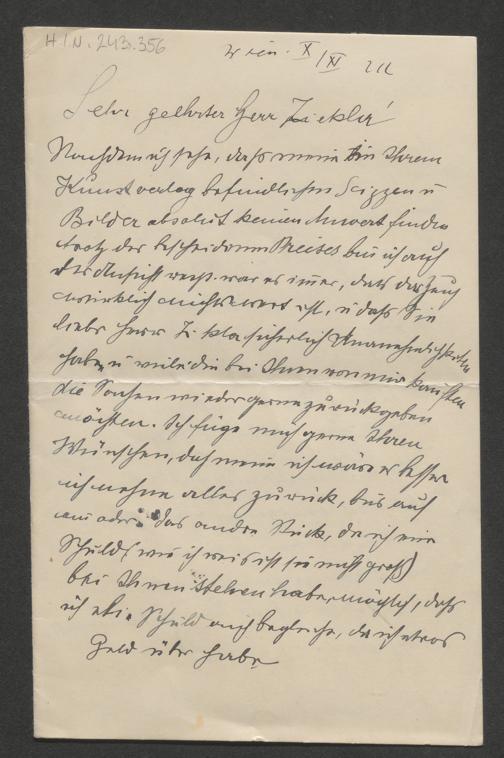 H.I.N. 243.356
Wien. X/XI
Sehr geehrter Herr
Nachdem ich sehe, daß meine in Ihrem
Kunstverlag befindlichen Scizzen u
Bilder absolut keinen Anwert finden
trotz der bescheidenen Preise bin ich auf
der Ansicht war es immer, daß das Zeug
wirklich nichts wert ist, u daß Sie
lieber Herr sicherlich Unannehmlichkeiten
haben u viele die bei Ihnen von mir kauften
die Sachen wieder gerne zurückgeben
möchten. Ich füge mich gerne Ihren
Wünschen, doch meine ich wäre es besser
ich nehme alles zurück, bis auf
ein oder das andre Stück, da ich eine
Schuld (wie ich weis ist sie nicht groß)
bei Ihnen stehen habe, möglich, daß
ich die Schuld auch begleiche, da ich etwas
Geld über habe